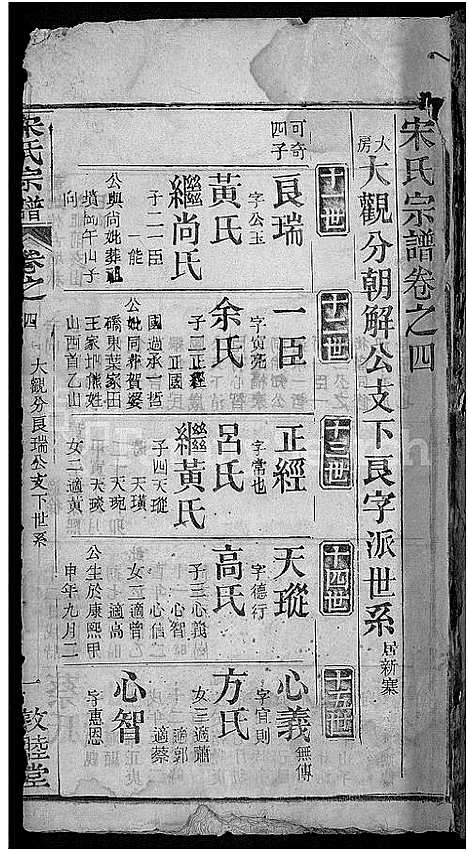 宋氏宗譜卷之四
大房
大觀分朝解公支下良字派世系
居新寨
十一世
十二世
十三世
十四世
十五世
可奇四子
良瑞
字公玉
黃氏
繼尚氏
子二一臣
一能
公與尚妣葬祖
墳側午山子
向
一臣
字寅亮
余氏
子二正經
正國
國過承一哲
公妣同葬賀婆
磽東葉家田
王家坳熊姓
山酉首乙山
正經
字常也
呂氏
繼黃氏
子四天瑽
天璜
天琬
天琰
女二適黃
天瑽
字德行
高氏
子三心義
心智
心信
女二適曾
適高
公生於康熙甲
申年九月二
心義
無傳
字宜則
方氏
女三適蕭
適郭
適蔡
心智
字惠恩
宋氏宗譜
卷之四
大觀分良瑞公支下世系
一
敦睦堂